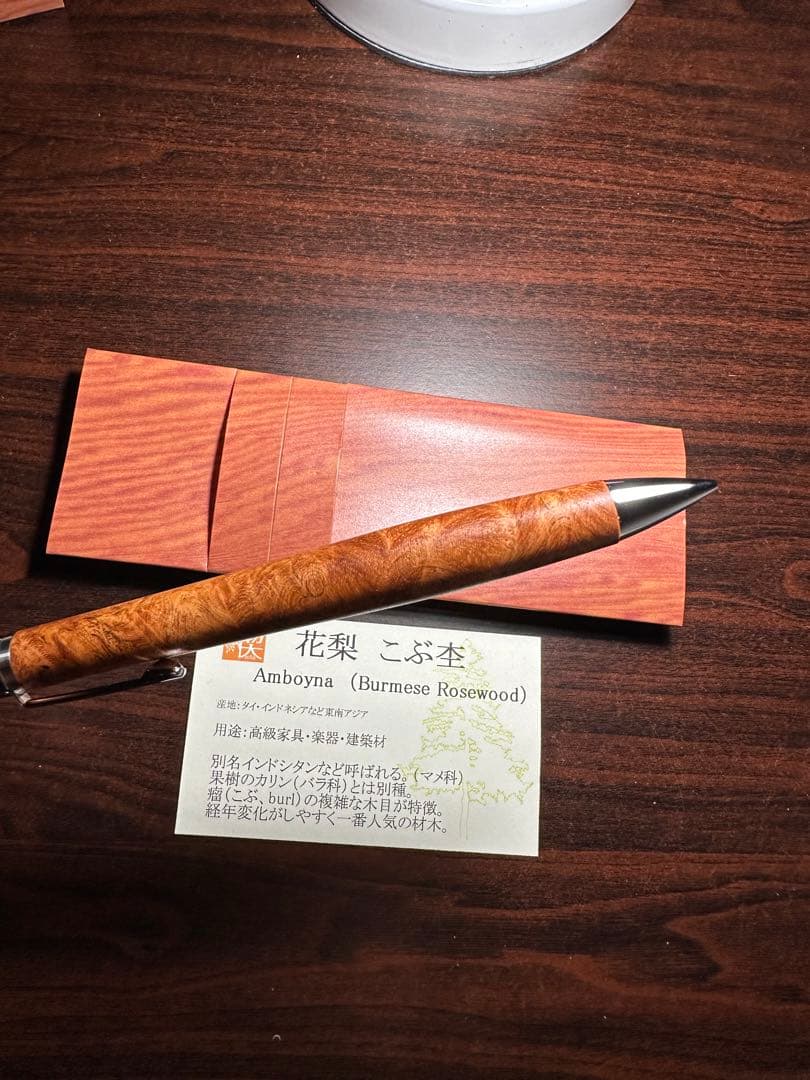 花梨 こぶ杢
Amboyna （Burmese Rosewood）
産地：タイ・インドネシアなど東南アジア
用途：高級家具・楽器・建築材
別名インドシタンなど呼ばれる。（マメ科）
果樹のカリン（バラ科）とは別種。
瘤（こぶ、burl）の複雑な木目が特徴。
経年変化がしやすく一番人気の材木。